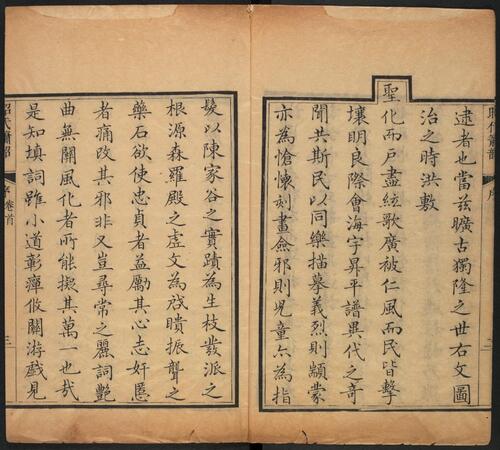 逮者也當茲曠古獨隆之世右文圖
治之時洪敷
聖化而戶盡絃歌廣被仁風而民皆擊
壤明良際會海宇昇平譜異代之奇
聞共斯民以同樂描摹義烈則顓蒙
亦為愴懷刻畫僉邪則兒童亦為指
髮以陳家谷之實蹟為生枝發派之
根源森羅殿之虛文為戒瞶振聾之
藥石欲使忠貞者益勵其心志奸慝
者痛改其邪非又豈尋常之麗詞艷
曲無關風化者所能擬其萬一也哉
是知填詞雖小道彰癉攸關游戲見
昭代簫韶
序 卷首
三